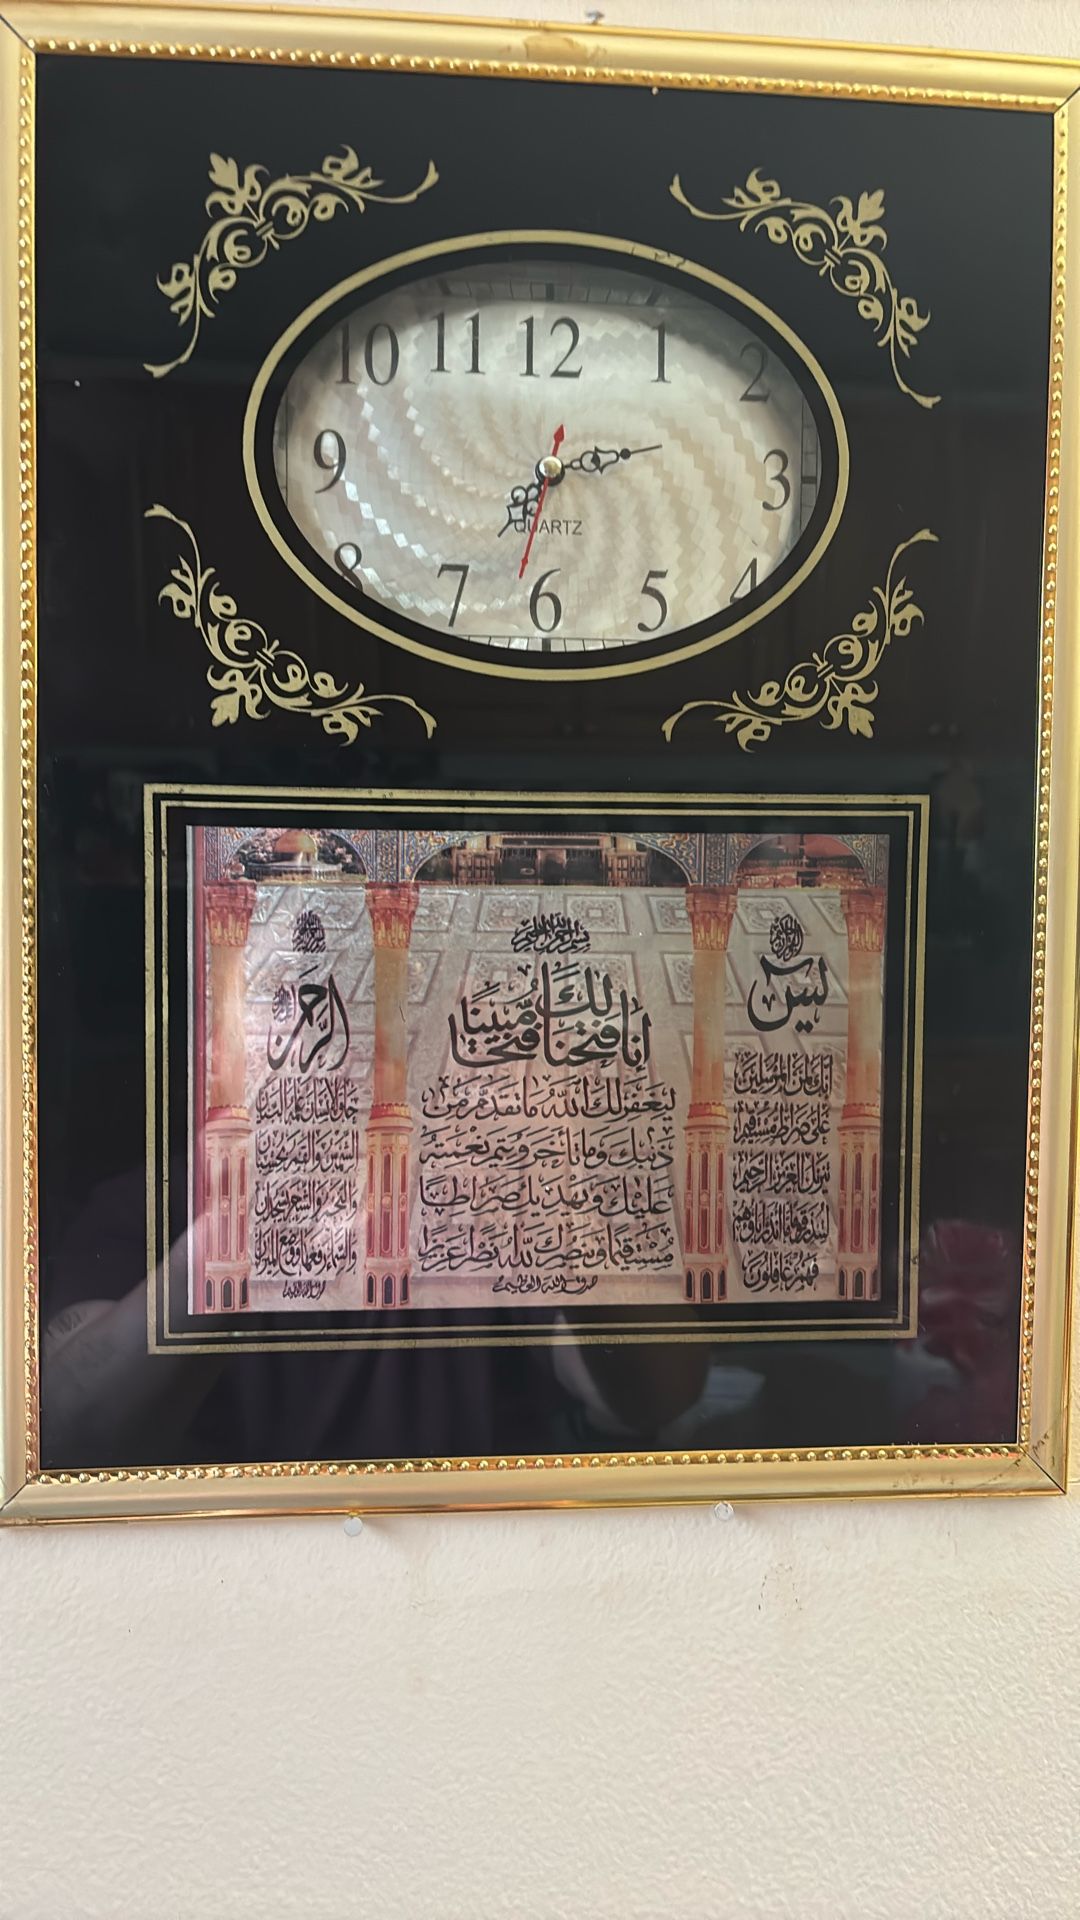 10 11 12 1 2
9 3
QUARTZ
8 7 6 5 4
بسم الله الرحمن الرحيم
يس
إنك لمن المرسلين
على صراط مستقيم
تنزيل العزيز الرحيم
لتنذر قوما ما أنذر آباؤهم
فهم غافلون
بسم الله الرحمن الرحيم
إِنَّا فَتَحْنَا لَكَ فَتْحًا مُّبِينًا
ليغفر لك الله ما تقدم من
ذنبك وما تأخر ويتم نعمته
عليك ويهديك صراطا
مستقيما وينصرك الله نصرا عزيزا
صدق الله العظيم
الرحمن
خلق الإنسان علمه البيان
الشمس والقمر بحسبان
والنجم والشجر يسجدان
والسماء رفعها ووضع الميزان
صدق الله العظيم